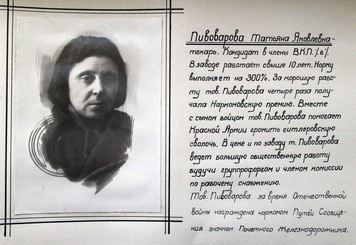 Пивоварова Татьяна Яковлевна-
токарь. Кандидат в члены В.К.П./б/.
В заводе работает свыше 10 лет. Норму
выполняет на 300%. За хорошую рабо-
ту тов. Пивоварова четыре раза полу-
чала Наркомовскую премию. Вместе
с сыном бойцом тов. Пивоварова помогает
Красной Армии громить гитлеровскую
сволочь. В цехе и по заводу т. Пивоварова
ведет большую общественную работу
будучи группрофоргом и членом комиссии
по рабочему снабжению.
Тов. Пивоварова за время Отечественной
войны награждена наркомом Путей Сообще-
ния значком Почетного Железнодорожника.